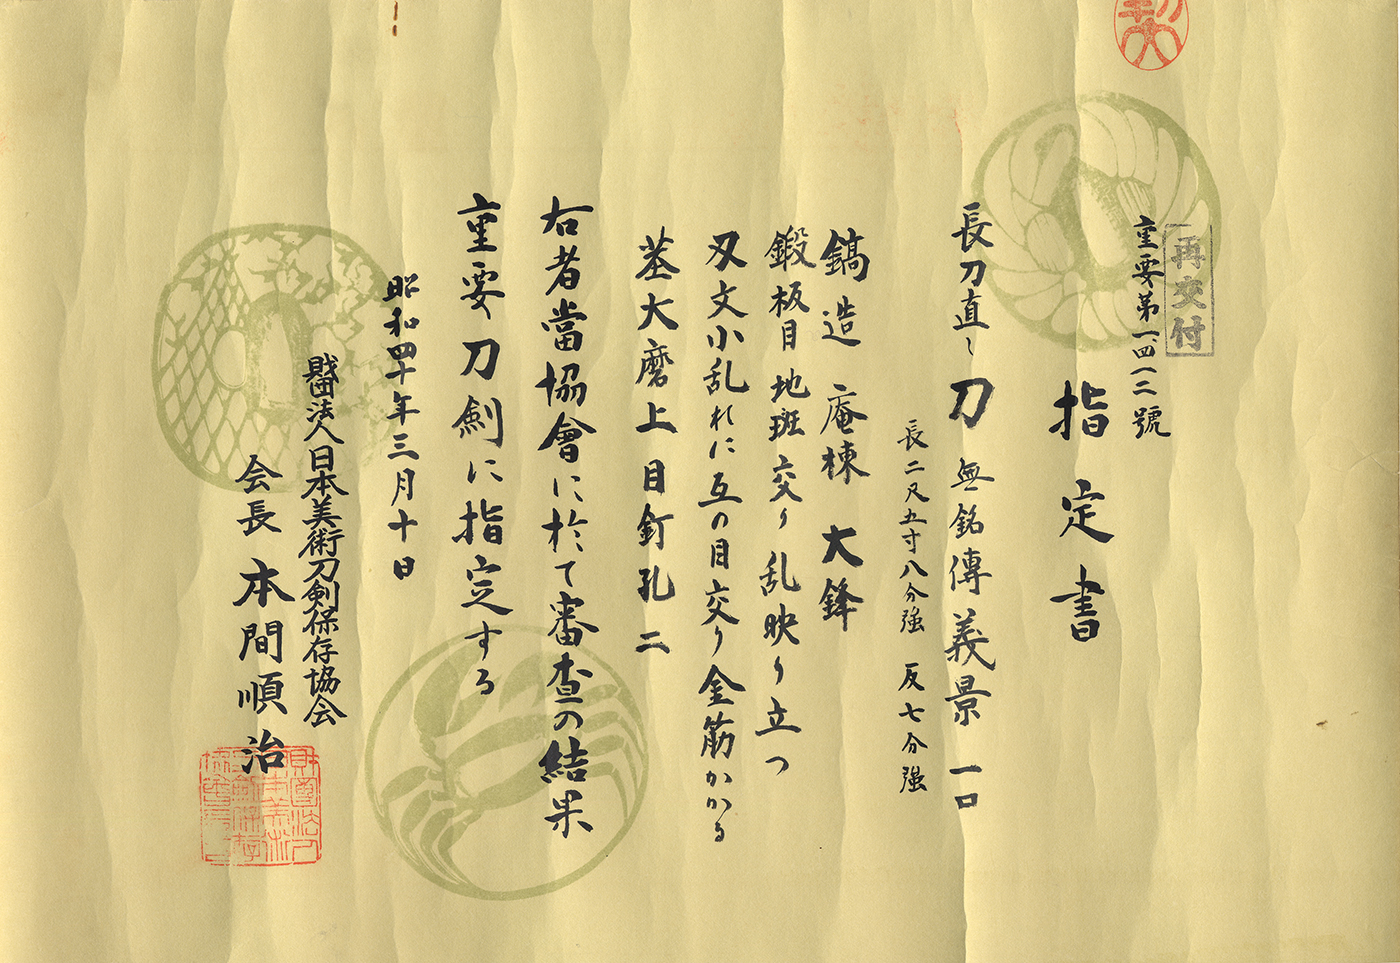 再交付
重要第一、四一二號
指定書
長刀直シ 刀 無銘傳義景 一口
長二尺五寸八分強 反七分強
鎬造 庵棟 大鋒
鍛板目地斑交り乱映り立つ
刃文小乱れに互の目交り金筋かかる
茎大磨上目釘孔二
右者當協會に於て審査の結果
重要刀剣に指定する
昭和四十年三月十日
財団法人日本美術刀剣保存協会
会長 本間順治